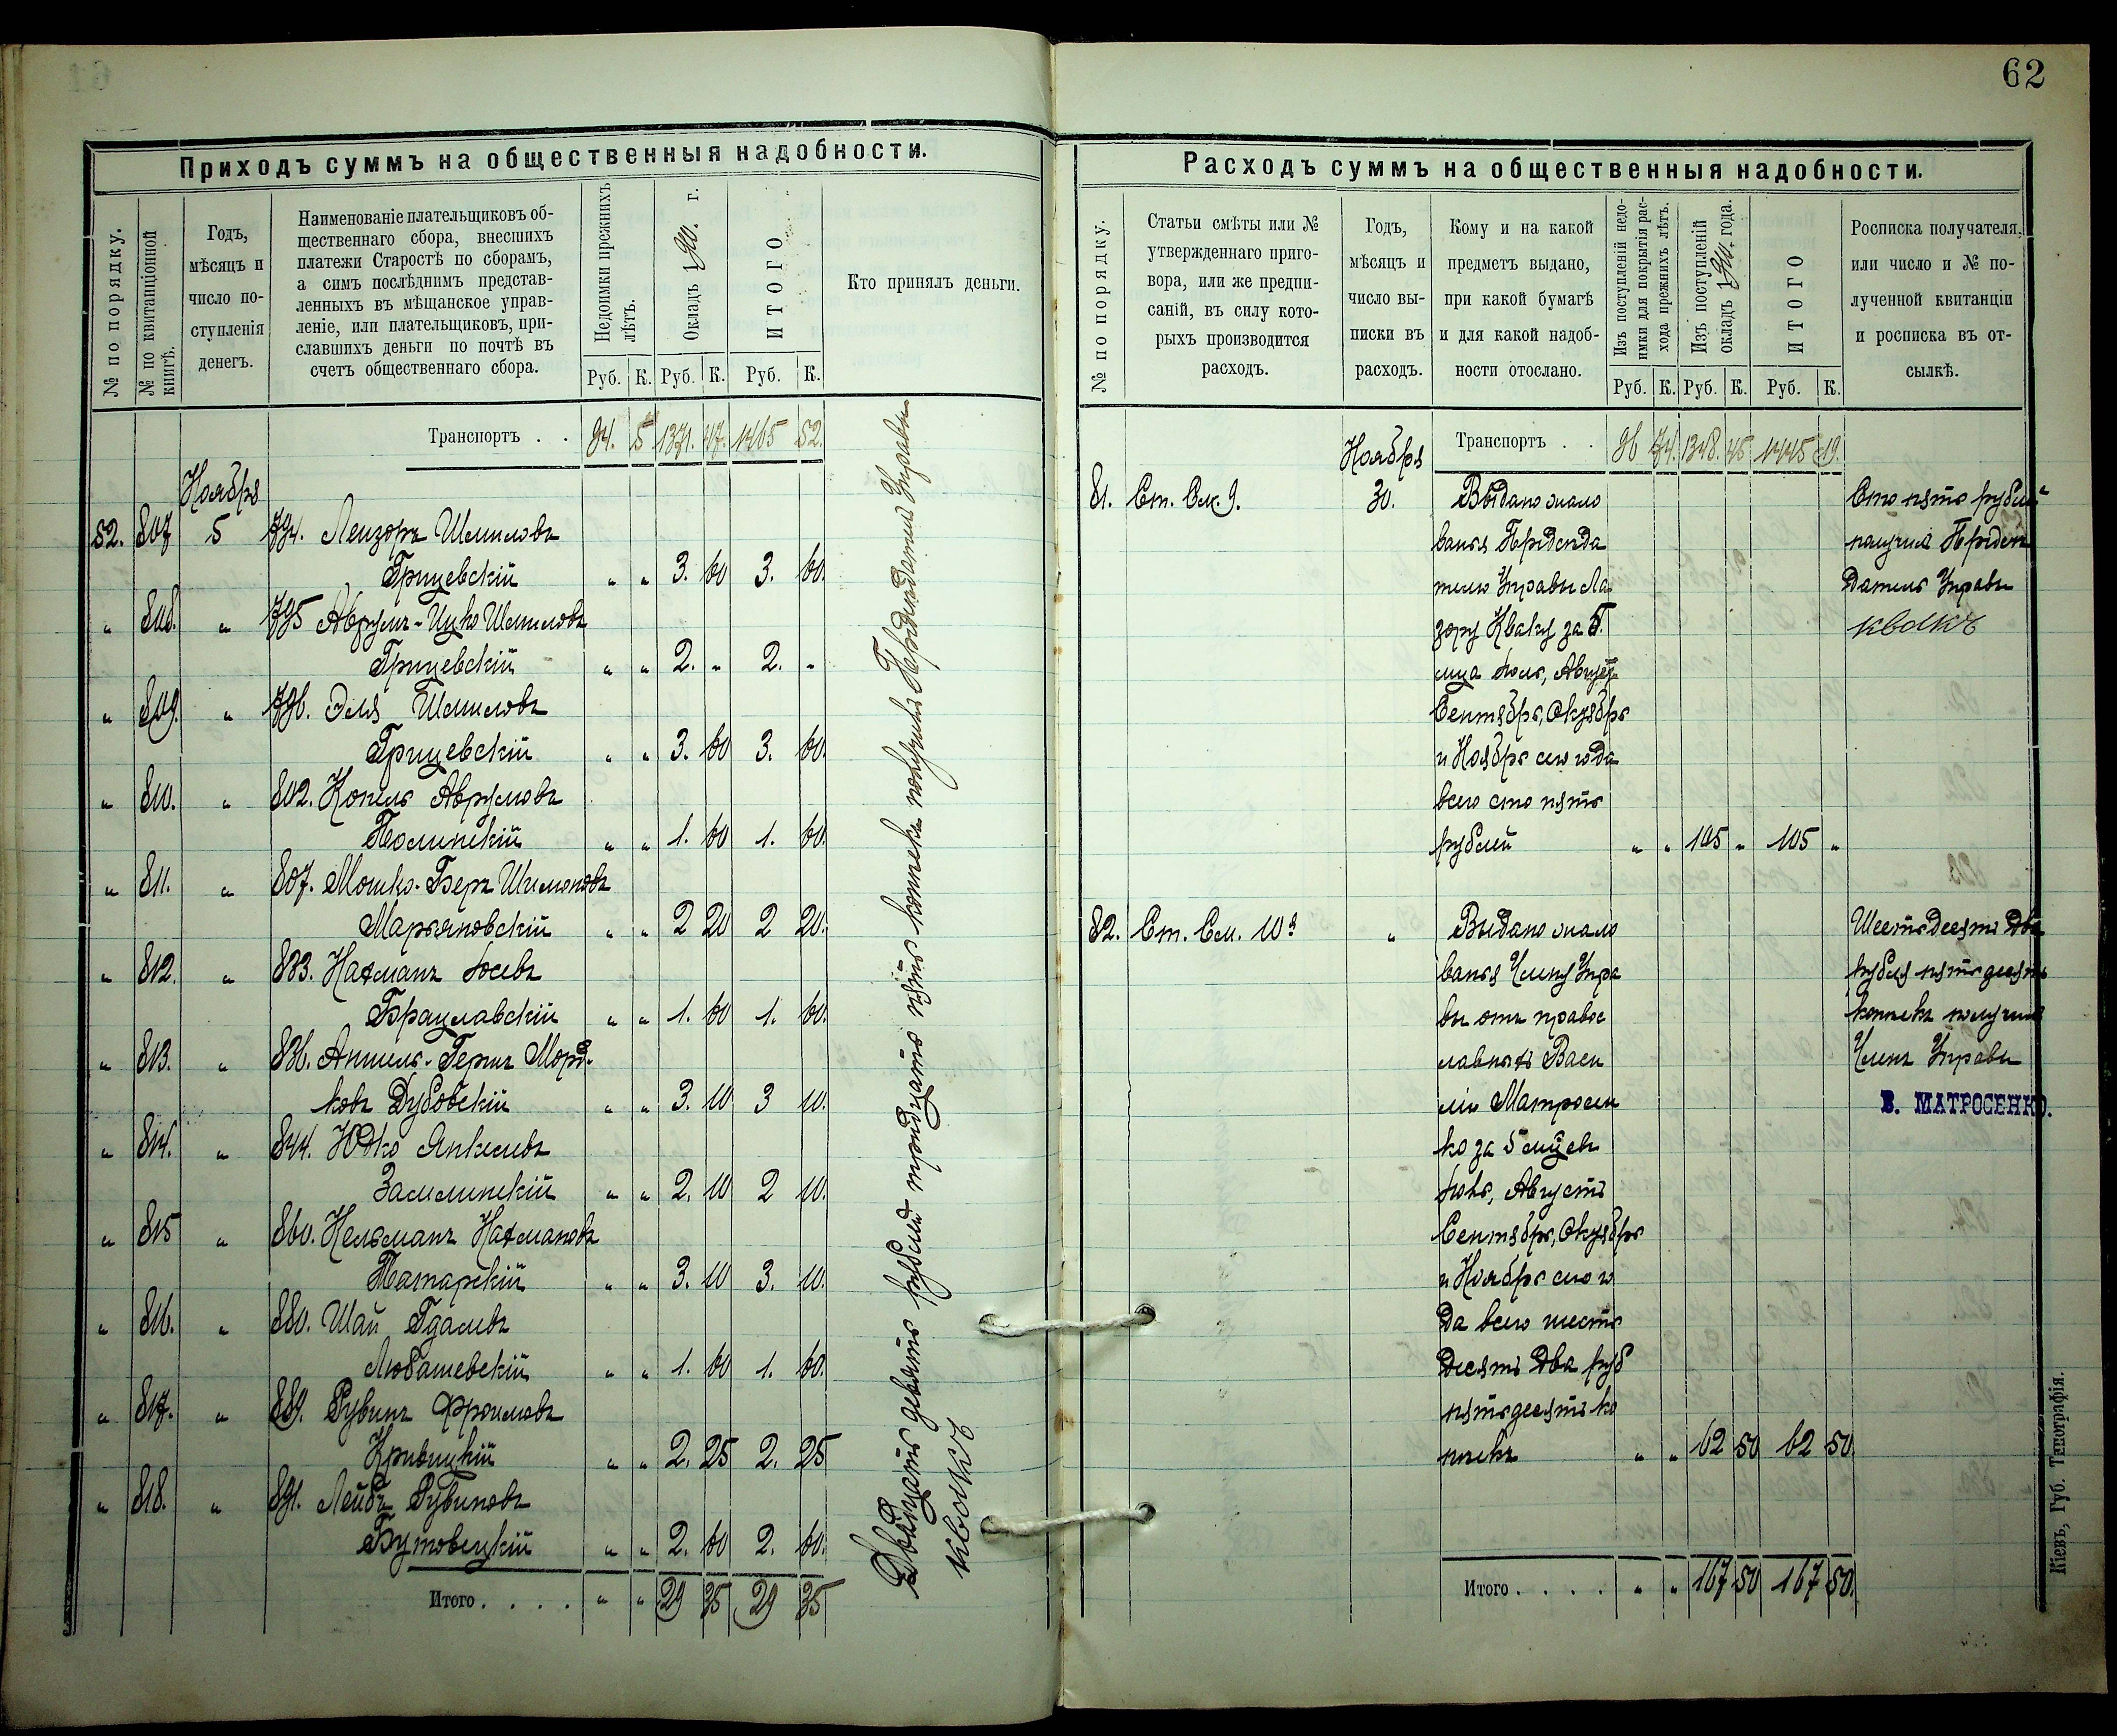 Приходъ суммъ на общественныя надобности.
№ по порядку.
№ по квитанціонной книгѣ.
Годъ,
мѣсяцъ и
число по-
ступленія
денегъ.
Наименованіе плательщиковъ об-
щественнаго сбора, внесшихъ
платежи Старостѣ по сборамъ,
а симъ послѣднимъ представ-
ленныхъ въ мѣщанское управ-
леніе, или плательщиковъ, при-
славшихъ деньги по почтѣ въ
счетъ общественнаго сбора.
Недоимки прежнихъ лѣтъ.
Окладъ 1900. г.
ИТОГО
Кто принялъ деньги.
Руб. К. Руб. К. Руб. К.
Транспортъ . . 94. 5 1371. 47. 1465 52.
Ноября
52. 807 5 794. Лейзоръ Шмиловъ
Грицевскій " " 3. 60 3. 60.
" 808. " 795 Аврумъ-Ицко Шмиловъ
Грицевскій " " 2. " 2. "
" 809. " 796. Эля Шмиловъ
Грицевскій " " 3. 60 3. 60.
" 810. " 802. Копель Аврумовъ
Полинскій " " 1. 60 1. 60.
" 811. " 807. Мошко-Беръ Шимоновъ
Марьяновскій " " 2 20 2 20.
" 812. " 833. Нахманъ Іосевъ
Брацлавскій " " 1. 60 1. 60.
" 813. " 836. Аншель-Гершъ Морд-
ковъ Дубовскій " " 3. 10 3 10.
" 814. " 844. Юдко Янкелевъ
Заслинскій " " 2. 10 2 10.
" 815 " 860. Кельманъ Нахмановъ
Татарскій " " 3. 10 3. 10.
" 816. " 880. Шая Гдалевъ
Любашевскій " " 1. 60 1. 60.
" 817. " 889. Рувинъ Фроимовъ
Кривицкій " " 2. 25 2. 25
" 818. " 891. Лейбъ Рувиновъ
Бутовецкій " " 2. 60 2. 60.
Итого . . . . " " 29 35 29 35
Двадцать девять рублей тридцать пять копеекъ получилъ Предсѣдатель Управы
Квокъ
62
Расходъ суммъ на общественныя надобности.
№ по порядку.
Статьи смѣты или №
утвержденнаго приго-
вора, или же предпи-
саній, въ силу кото-
рыхъ производится
расходъ.
Годъ,
мѣсяцъ и
число вы-
писки въ
расходъ.
Кому и на какой
предметъ выдано,
при какой бумагѣ
и для какой надоб-
ности отослано.
Изъ поступленій недо-
имки для покрытія рас-
хода прежнихъ лѣтъ.
Изъ поступленій
окладъ 1900. года.
ИТОГО
Росписка получателя,
или число и № по-
лученной квитанціи
и росписка въ от-
сылкѣ.
Руб. К. Руб. К. Руб. К.
Транспортъ . . 96 74. 1348. 45 1445 19.
Ноября
81. Ст. См. 9. 30. Выдано жало
ванья Предсѣда
телю Управы Ла
зору Кваку за 5.
мца Іюль, Августъ
Сентябрь, Октябрь
и Ноябрь сего года
всего сто пять
рублей " " 105 " 105 "
Сто пять рублей
получилъ Предсѣ
датель Управы
Квокъ
82. Ст. См. 10 " Выдано жало
ванья Члену Упра
вы отъ правос
лавныхъ Васи
лію Матросен
ко за 5 мцевъ
Іюль, Августъ
Сентябрь, Октябрь
и Ноябрь сего го
да всего шесть
десятъ два руб
пятьдесятъ ко
пѣекъ " " 62 50 62 50.
Шестьдесятъ два
рубля пятьдесятъ
копѣекъ получилъ
Членъ Управы
В. МАТРОСЕНКО.
Итого . . . . " " 167 50 167 50.
Кіевъ, Губ. Типографія.